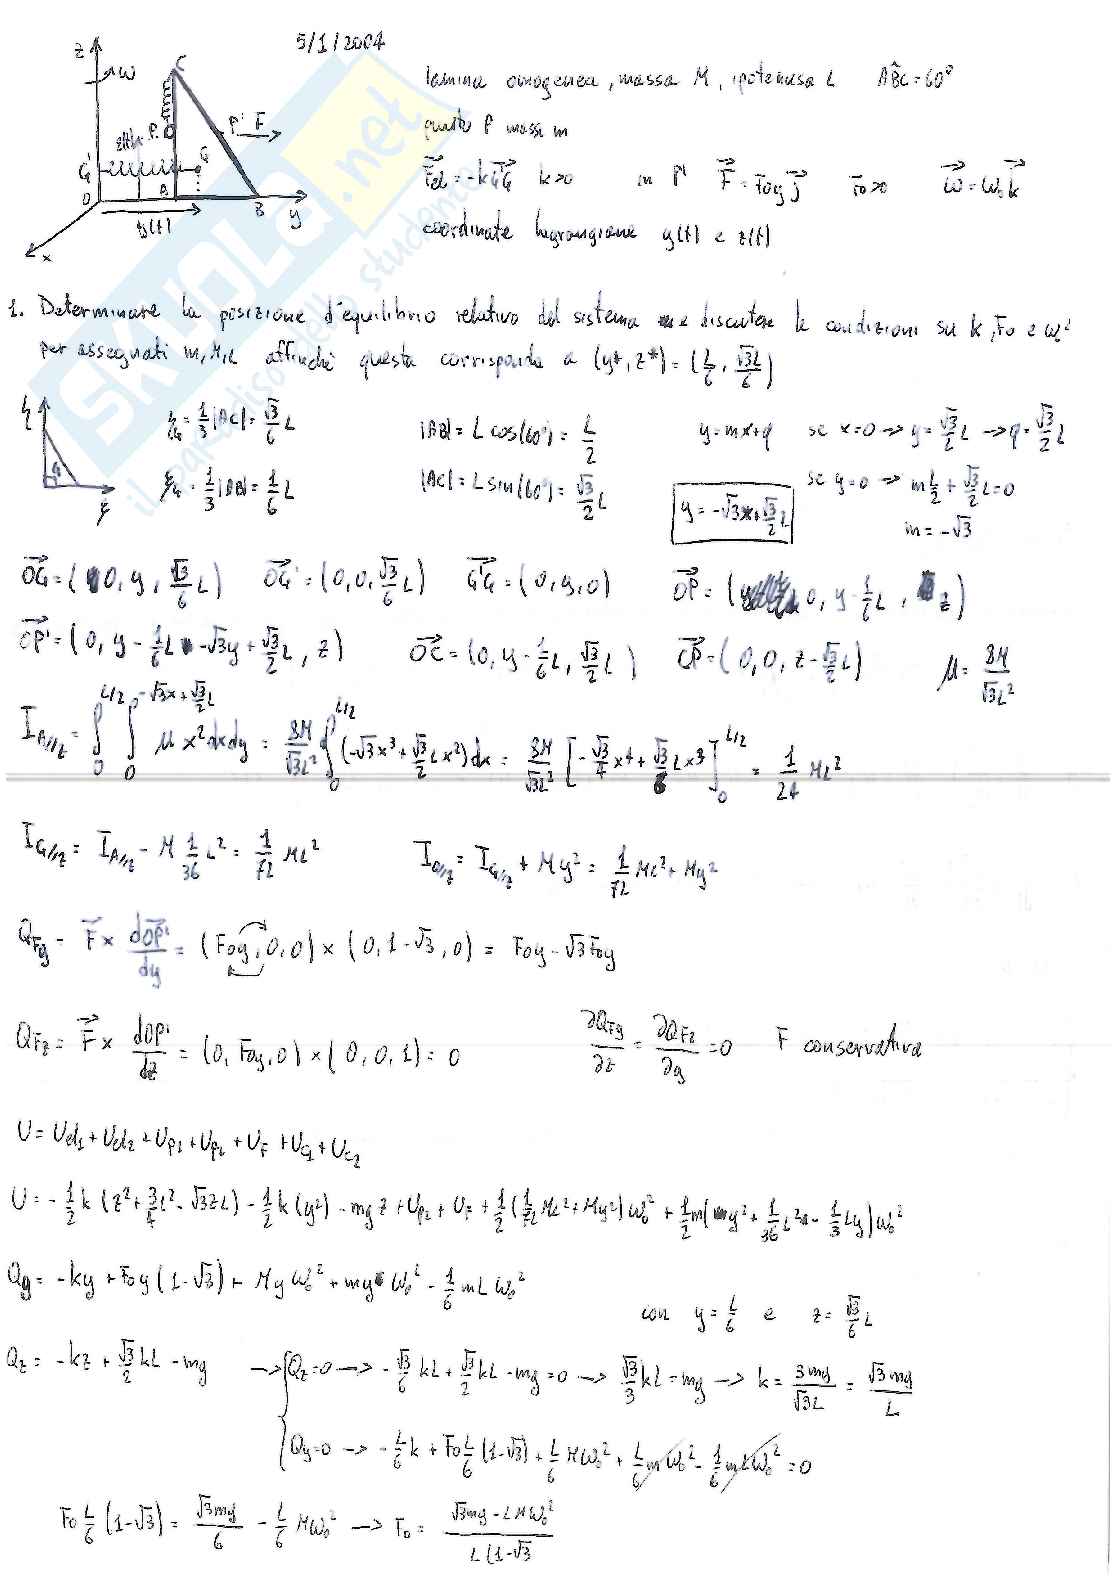 5/1/2004
z
ω
C
P
P' F
G'
G
O
A
B
y
y(t)
x
lamina omogenea, massa M, ipotenusa L AB̂C=60°
punto P massa m
F⃗el = -k G'G⃗ k>0 in P' F⃗ = F₀y j⃗ F₀>0 ω⃗ = ω₀k⃗
coordinate lagrangiane y(t) e z(t)
SKUOLA.net
il paradiso dello studente
1. Determinare la posizione d'equilibrio relativo del sistema e discutere le condizioni su k, F₀ e ω₀²
per assegnati m, M, L affinché questa corrisponda a (y*, z*) = (L/6, √3L/6)
ζG = 1/3 |AC| = √3/6 L |AB| = L cos(60°) = L/2 y=mx+q se x=0 → y = √3/2 L → q = √3/2 L
ξG = 1/3 |AB| = 1/6 L |AC| = L sin(60°) = √3/2 L y = -√3x + √3/2 L se y=0 → m L/2 + √3/2 L = 0
m = -√3
OG⃗ = (0, y, √3/6 L) OG'⃗ = (0, 0, √3/6 L) G'G⃗ = (0, y, 0) OP⃗ = (0, y - 1/6 L, z)
OP'⃗ = (0, y - 1/6 L - √3y + √3/2 L, z) OC⃗ = (0, y - 1/6 L, √3/2 L) CP⃗ = (0, 0, z - √3/2 L) μ = 8M/√3L²
I_A//z = ∫₀^L/2 ∫₀^-√3x+√3/2L μ x² dxdy = 8M/√3L² ∫₀^L/2 (-√3x³ + √3/2 Lx²)dx = 8M/√3L² [-√3/4 x⁴ + √3/6 L x³]₀^L/2 = 1/24 ML²
I_G//z = I_A//z - M 1/36 L² = 1/72 ML² I_O//z = I_G//z + My² = 1/72 ML² + My²
Q_Fy = F⃗ × dOP'⃗/dy = (F₀y, 0, 0) × (0, 1-√3, 0) = F₀y - √3 F₀y
Q_Fz = F⃗ × dOP'/dz = (0, F₀y, 0) × (0, 0, 1) = 0 ∂Q_Fy/∂z = ∂Q_Fz/∂y = 0 F conservativa
U = Uel₁ + Uel₂ + Up₁ + Up₂ + U_F + Uc₁ + Uc₂
U = -1/2 k (z² + 3/4 L² - √3zL) - 1/2 k (y²) - mgz + Up₂ + U_F + 1/2 (1/72 ML² + My²)ω₀² + 1/2 m(y² + 1/36 L² - 1/3 Ly)ω₀²
Qy = -ky + F₀y(1-√3) + Myω₀² + myω₀² - 1/6 mLω₀²
con y = L/6 e z = √3/6 L
Qz = -kz + √3/2 kL - mg → { Qz=0 → -√3/6 kL + √3/2 kL - mg = 0 → √3/3 kL = mg → k = 3mg/√3L = √3mg/L
Qy=0 → -L/6 k + F₀ L/6 (1-√3) + L/6 Mω₀² + L/6 mω₀² - 1/6 mLω₀² = 0
F₀ L/6 (1-√3) = √3mg/6 - L/6 Mω₀² → F₀ = √3mg - LMω₀² / L(1-√3